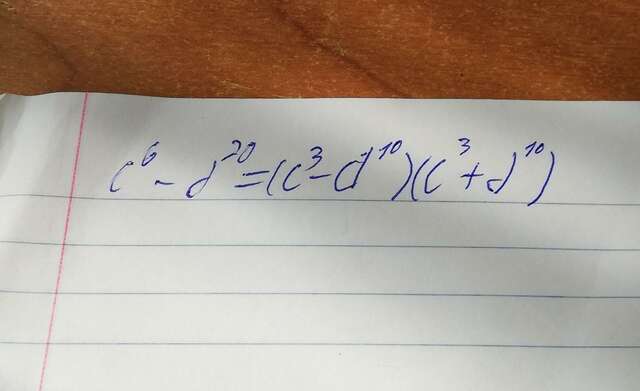 c⁶ - d²⁰ = (c³ - d¹⁰)(c³ + d¹⁰)